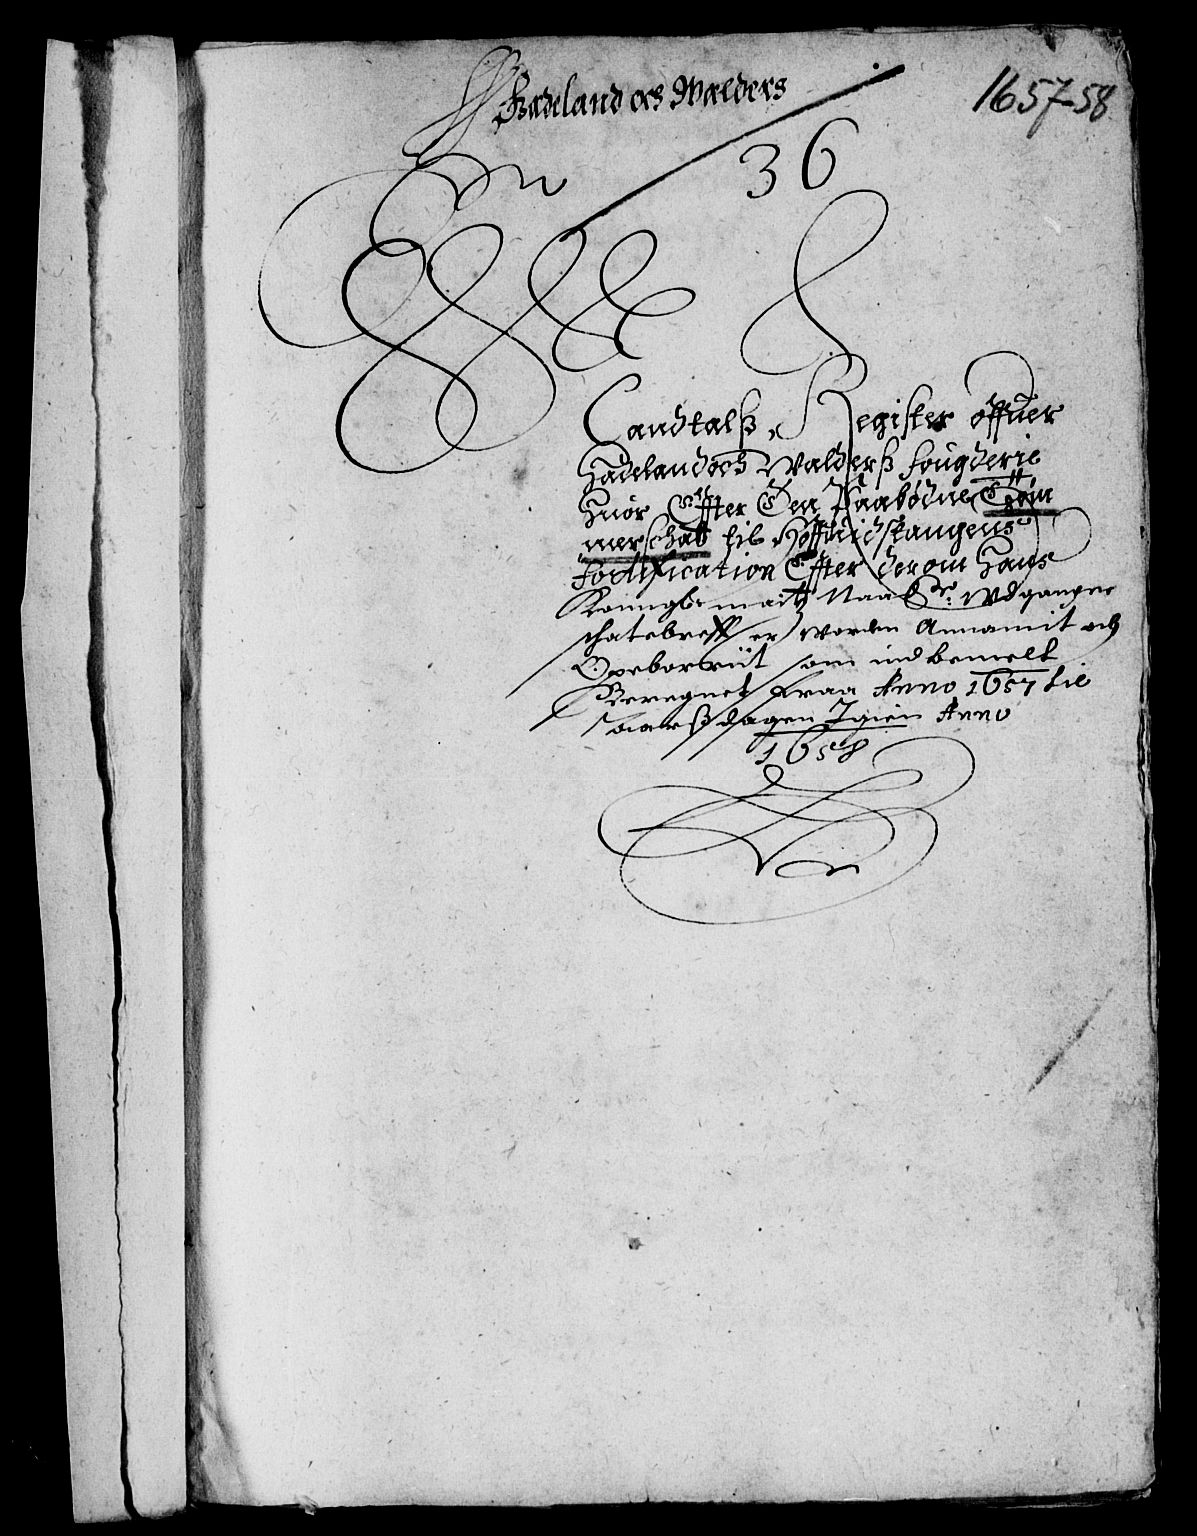 Hadeland och Walders
1657-58
36
Landtalß Register offuer
Hadeland och Walderß fougderie
Huor Effter Den Paabødne Tøm
merschat til Hoffuidstangens
fortification Effter derom Hans
Konngl: maitz Naad: Udgangne
schatebreff er worden Annamit och
Opeborrit som indbemelt
Beregnet fraa Anno 1657 til
aarßdagen Igien Anno
1658